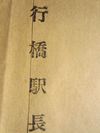 行橋駅長